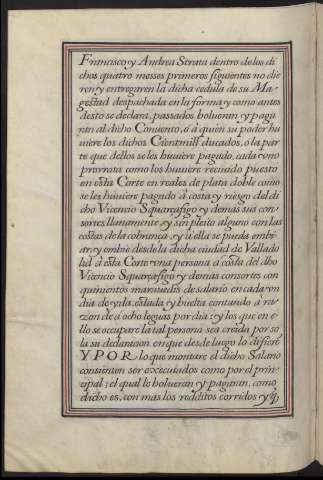 Francisco, y Andrea Strata dentro de los di
chos quatro messes primeros siguientes no die
ren, y entregaren la dicha cedula de su Ma-
gestad despachada en la forma, y como antes
desto se declara, passados bolueran, y paga
ran al dicho Conuento, ò à quien su poder hu
uiere los dichos Cient mill ducados, ò la par
te que dellos se les huuiere pagado, cada vno
prorrata como los huuiere receuido puesto
en esta Corte en reales de plata doble como
se les huuiere pagado à costa, y riesgo del di
cho Vicencio Squarçafigo, y demas sus con-
sortes llanamente, y sin pleito alguno con las
costas de la cobrança, y à ella se pueda embi-
ar, y embie desde la dicha ciudad de Vallado
lid à esta Corte vna persona à costa del dho
Vicencio Squarçafigo, y demas consortes con
quinientos marauedis de salario en cada vn
dia de yda, estada, y buelta contando à ra-
zon de à ocho leguas por dia: y los que en e-
llo se occupare la tal persona sea creida por so
la su declaracion en que desde luego lo difiere
Y POR lo que montare el dicho Salario
consienten ser executados como por el prin-
cipal; el qual le bolueran, y pagaran, como
dicho es, con mas los redditos corridos, y q̃